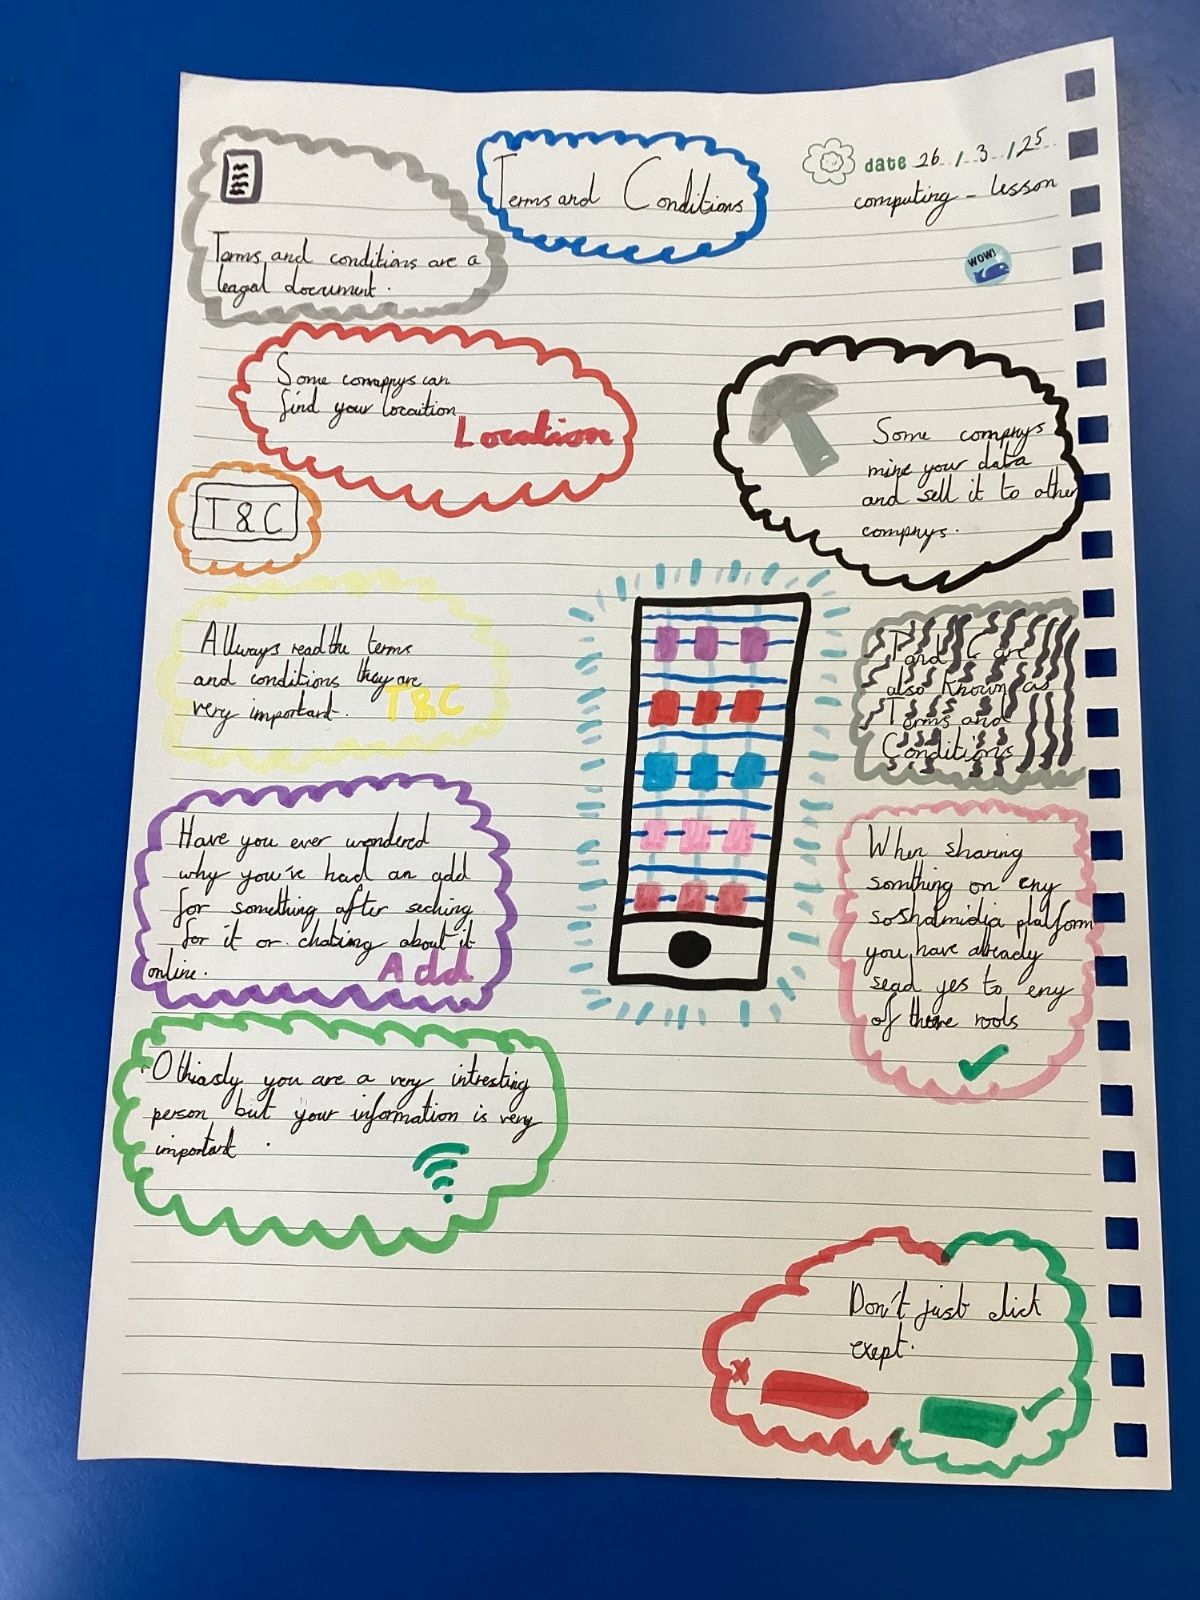 Terms and Conditions
date 26/3/25
computing - lesson
WOW!
Terms and conditions are a
leagal document.
Some comappys can
find your locaition
Location
Some compnys
mine your data
and sell it to other
compnys.
T & C
Allways read the terms
and conditions they are
very important.
T&C
T and C are
also known as
Terms and
Conditions
Have you ever wondered
why you've had an add
for something after seching
for it or chating about it
online.
Add
When sharing
somthing on eny
soshalmidia platform
you have already
sead yes to eny
of there rools
Othiasly you are a very intresting
person but your information is very
important.
Don't just click
exept.